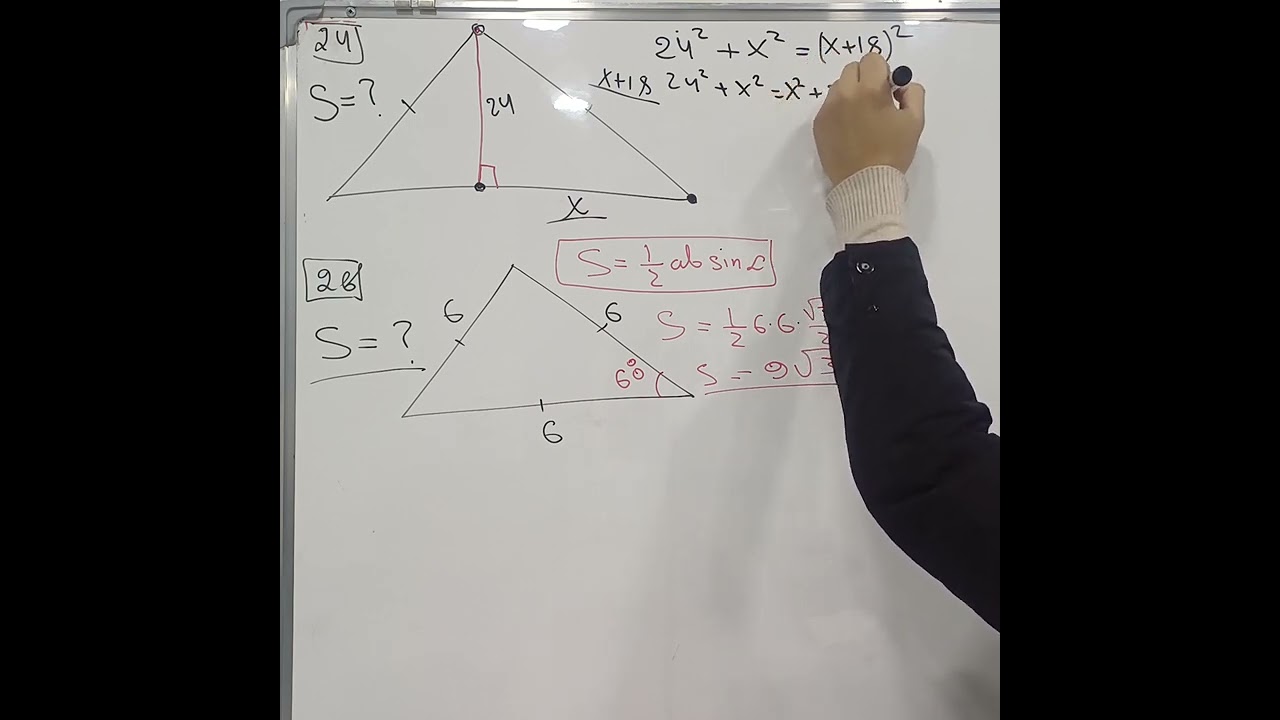 24
S = ?
24
x
x+18
24² + x² = (x+18)²
24² + x² = x² +
26
S = ?
6
6
6
60°
S = 1/2 ab sin L
S = 1/2 6·6·
S = 9√3